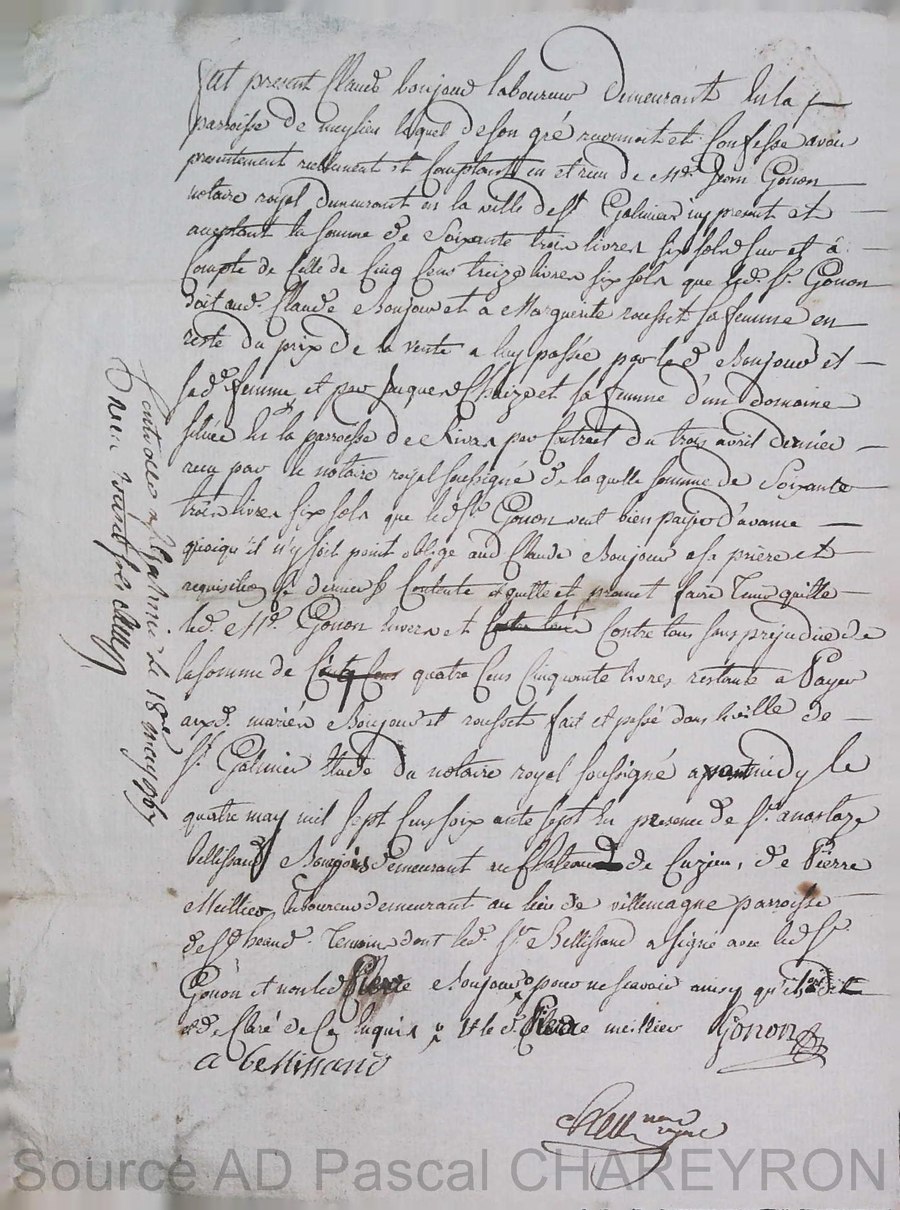 fut present Claude bonjour laboureur demeurant en la
parroisse de meylieu lequel de son gré reconnoit et confesse avoir
presentement reellement et comptant eu et receu de Me. Jean Gonon
notaire royal demeurant en la ville de St Galmier icy present et
acceptant la somme de Soixante trois livres six sols sur et à
Compte de Celle de Cinq Cens treize livres six sols que led. Sr. Gonon
doit aud. Claude Bonjour et a Marguerite rousset sa femme en
reste du prix de la vente a luy passée par le d. Bonjour et
sa de. femme et par Jacques Chaize et sa femme d'un domaine
située en la parroisse de Rivas par Contract du trois avril dernier
receu par le notaire royal soussigné de laquelle somme de Soixante
trois livres six sols que led. Sr. Gonon veut bien payer d'avance
quoiqu'il n'y soit point obligé aud Claude Bonjour a sa prière et
requisition Ce dernier se Contente et quitte et promet faire tenir quitte
led. Me. Gonon envers et Contre tous sans prejudice de
la somme de Cinq Cens quatre Cens Cinquante livres restante a Payer
auxd. mariés Bonjour et rousset fait et passé dans la ville de
St. Galmier Etude du notaire royal soussigné avant midy le
quatre may mil sept Cens soixante sept En presence de Sr. anastaze
bellissand Bourgois demeurant au Chateau de Cuzieu, & de Pierre
Meillier laboureur demeurant au lieu de villemagne parroisse
de St. heand. Temoins dont led. Sr. Bellissand a signé avec led Sr.
Gonon et non led Pierre Bonjour pour ne scavoir ainsy qu'il a dit
et declaré de Ce enquis & le d. Pierre meillier Gonon
A bellissand
notre royal
Controllé a St Galmier le 18 may 1767
Receu treize sols
Source AD Pascal CHAREYRON